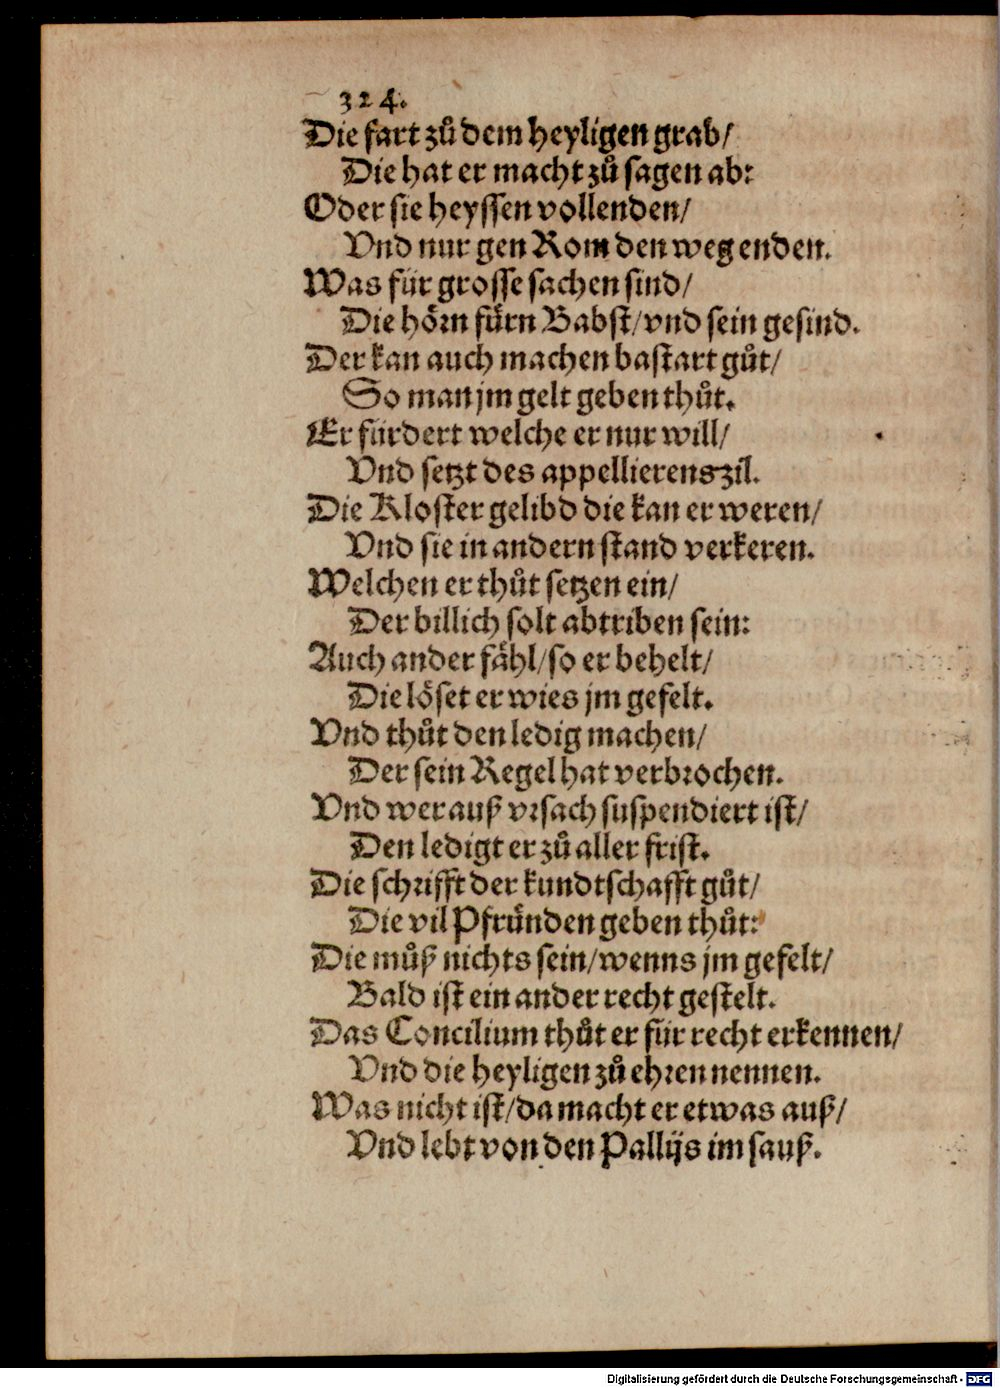 324.
Die fart zuͦ dem heyligen grab/
Die hat er macht zuͦ sagen ab:
Oder sie heyssen vollenden/
Vnd nur gen Rom den weg enden.
Was für grosse sachen sind/
Die hoͤrn fuͤrn Babst/vnd sein gesind.
Der kan auch machen bastart guͦt/
So man jm gelt geben thuͦt.
Er fürdert welche er nur will/
Vnd setzt des appellierens zil.
Die Kloster gelibd die kan er weren/
Vnd sie in andern stand verkeren.
Welchen er thuͦt setzen ein/
Der billich solt abtriben sein:
Auch ander faͤhl/so er behelt/
Die loͤset er wies jm gefelt.
Vnd thuͦt den ledig machen/
Der sein Regel hat verbrochen.
Vnd wer auß vrsach suspendiert ist/
Den ledigt er zuͦ aller frist.
Die schrifft der kundtschafft guͦt/
Die vil Pfruͤnden geben thuͦt:
Die muͦß nichts sein/wenns jm gefelt/
Bald ist ein ander recht gestelt.
Das Concilium thuͦt er für recht erkennen/
Vnd die heyligen zuͦ ehren nennen.
Was nicht ist/da macht er etwas auß/
Vnd lebt von den Pallijs im sauß.
Digitalisierung gefördert durch die Deutsche Forschungsgemeinschaft - DFG